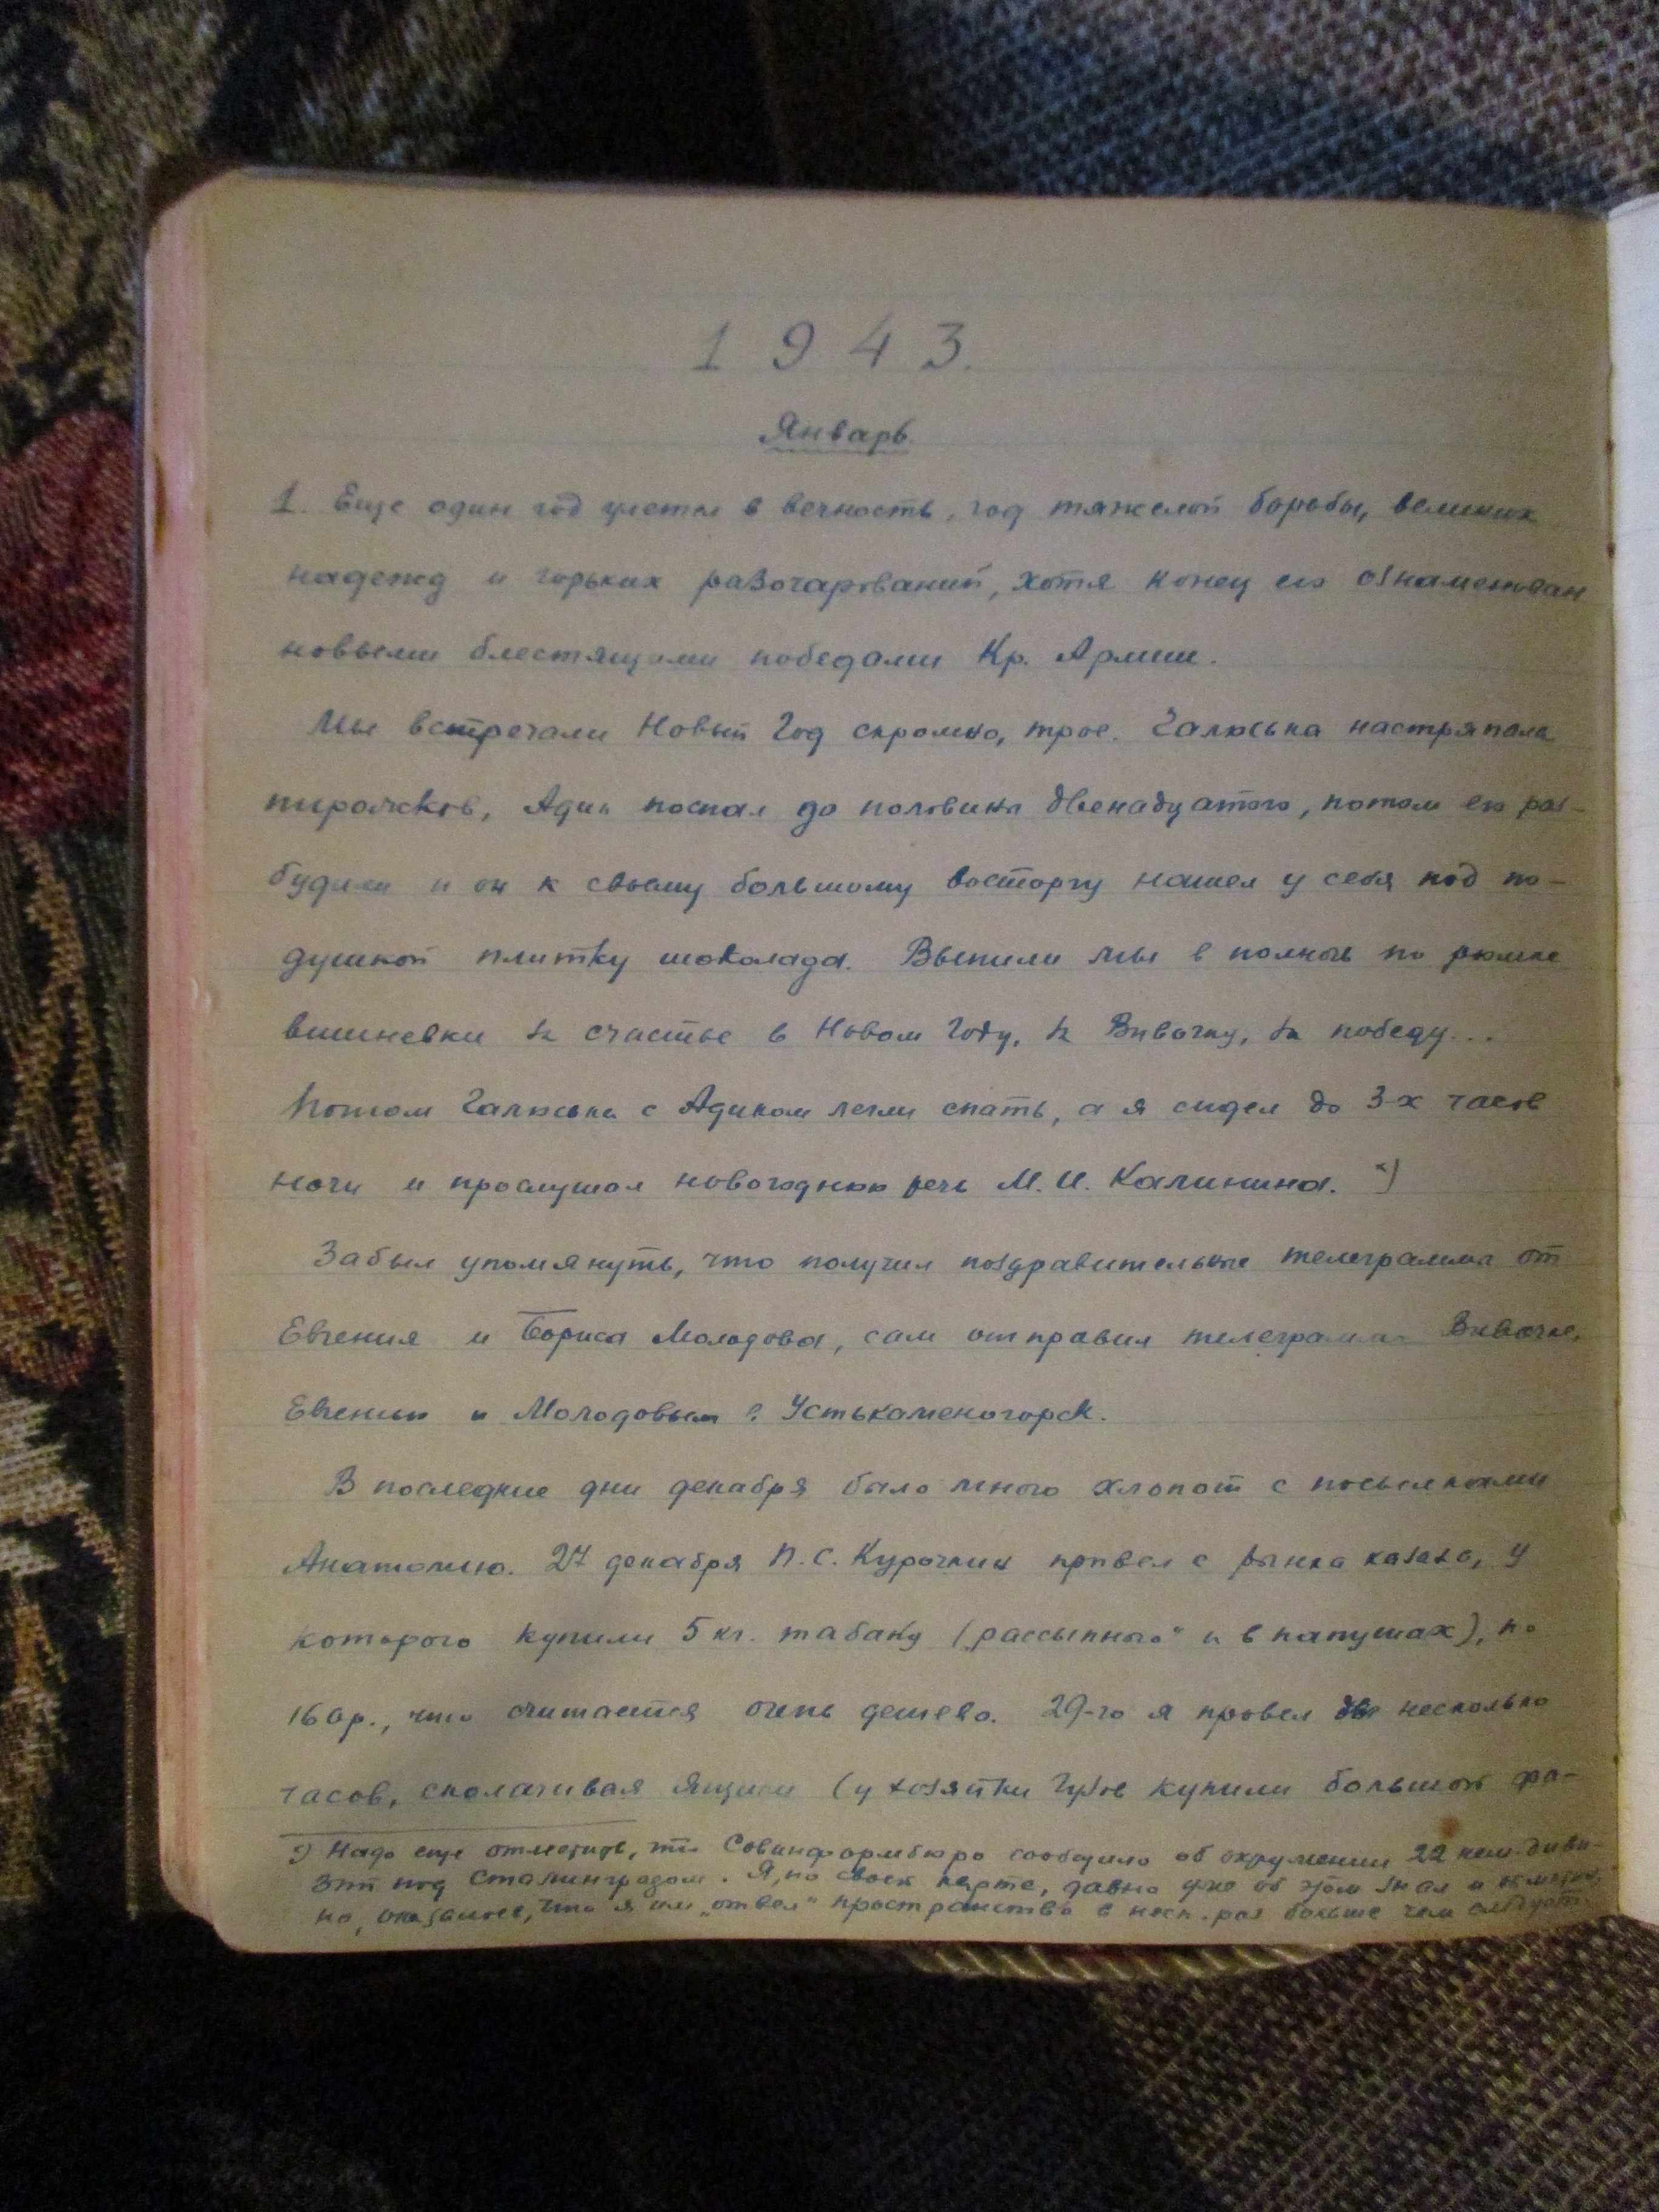 1943.
Январь.
1. Еще один год улетел в вечность, год тяжелой борьбы, великих
надежд и горьких разочарований, хотя конец его ознаменован
новыми блестящими победами Кр. Армии.
Мы встречали Новый Год скромно, трое. Галюська настряпала
пирожков, Адик поспал до половины двенадцатого, потом его раз-
будили и он к своему большому восторгу нашел у себя под по-
душкой плитку шоколада. Выпили мы в полночь по рюмке
вишневки за счастье в Новом Году, за Вивочку, за победу...
Потом Галюська с Адиком легли спать, а я сидел до 3-х часов
ночи и прослушал новогоднюю речь М.И. Калинина. *)
Забыл упомянуть, что получил поздравительные телеграммы от
Евгения и Бориса Молодова, сам отправил телеграммы Вивочке,
Евгению и Молодовым в Устькаменогорск.
В последние дни декабря было много хлопот с посылками
Анатолию. 27 декабря П.С. Курочкин привел с рынка казаха, у
которого купили 5 кг. табаку („рассыпного" и в папушах), по
160р., что считается очень дешево. 29-го я провел несколько
часов, сколачивая ящики (у хозяйки Гузов купили большой фа-
*) Надо еще отметить, что Совинформбюро сообщило об окружении 22 нем. диви-
зий под Сталинградом. Я, по своей карте, давно уже об этом знал и
но, оказывается, что я им „отвел" пространство в неск. раз больше чем следует.